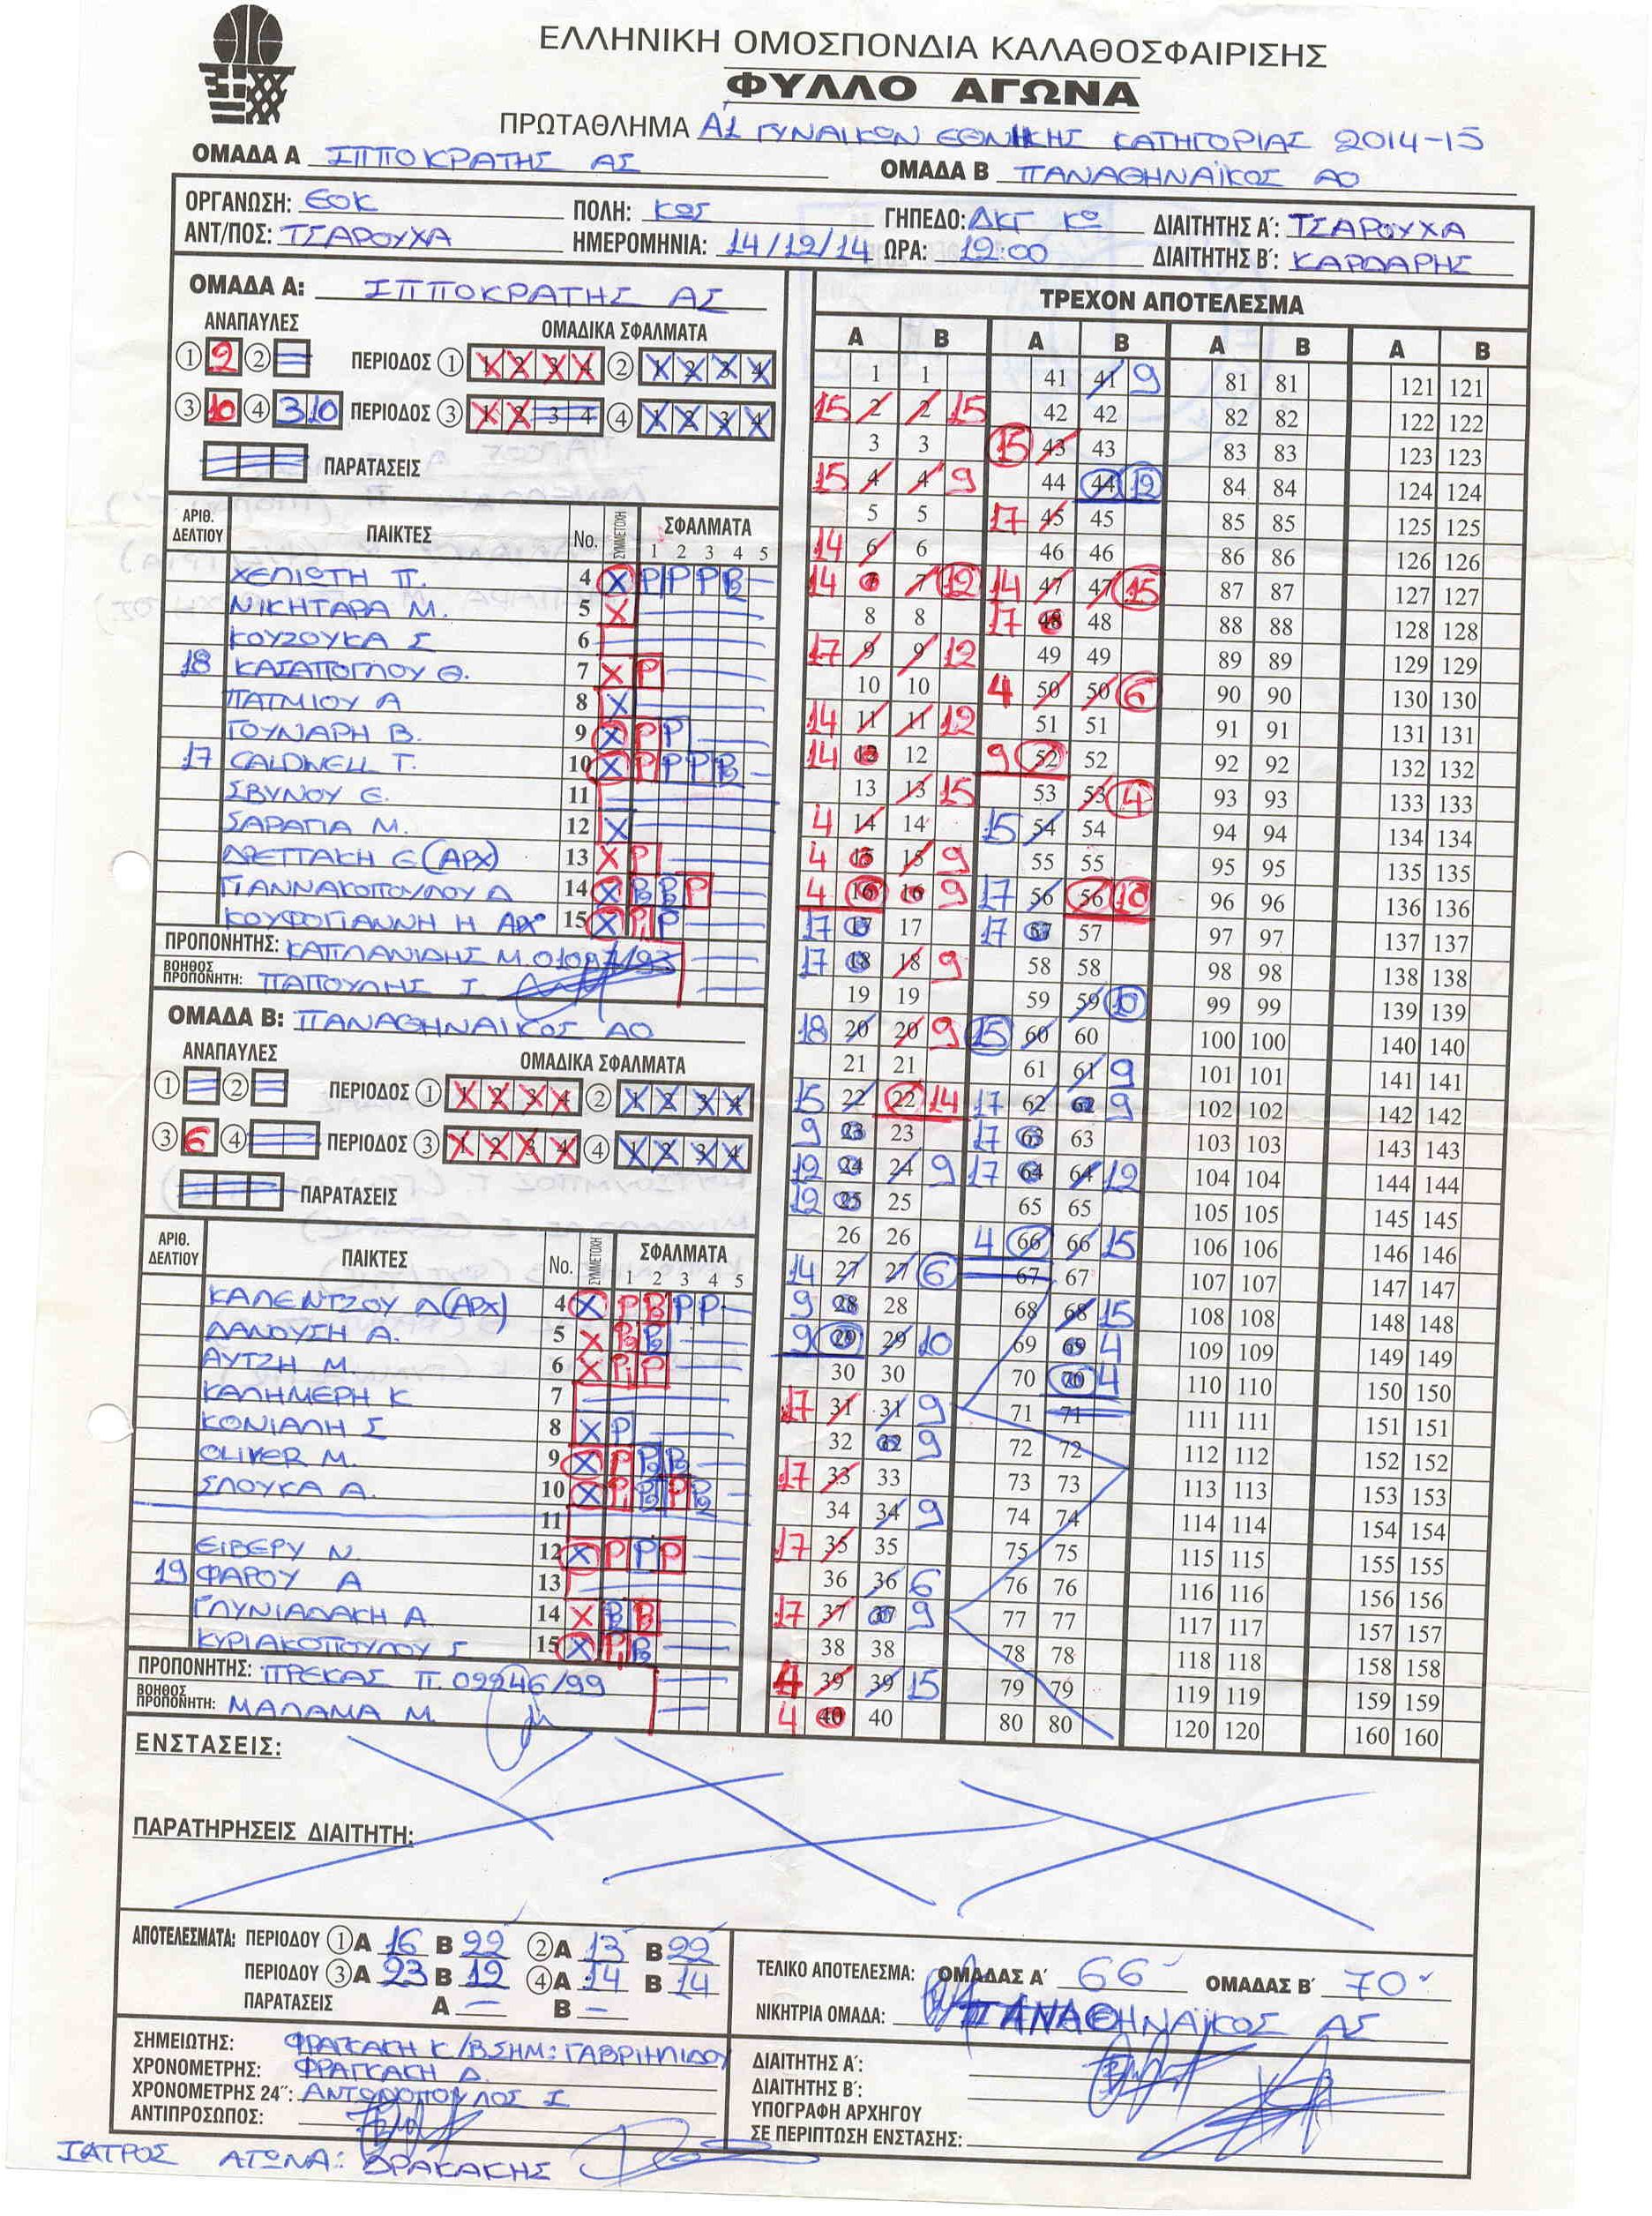 ΕΛΛΗΝΙΚΗ ΟΜΟΣΠΟΝΔΙΑ ΚΑΛΑΘΟΣΦΑΙΡΙΣΗΣ
ΦΥΛΛΟ ΑΓΩΝΑ
ΠΡΩΤΑΘΛΗΜΑ Α1 ΓΥΝΑΙΚΩΝ ΕΘΝΙΚΗΣ ΚΑΤΗΓΟΡΙΑΣ 2014-15
ΟΜΑΔΑ Α ΙΠΠΟΚΡΑΤΗΣ ΑΣ ΟΜΑΔΑ Β ΠΑΝΑΘΗΝΑΪΚΟΣ ΑΟ
ΟΡΓΑΝΩΣΗ: ΕΟΚ ΠΟΛΗ: ΚΩΣ ΓΗΠΕΔΟ: ΔΚΓ ΚΩ ΔΙΑΙΤΗΤΗΣ Α΄: ΤΣΑΡΟΥΧΑ
ΑΝΤ/ΠΟΣ: ΤΣΑΡΟΥΧΑ ΗΜΕΡΟΜΗΝΙΑ: 14/12/14 ΩΡΑ: 12:00 ΔΙΑΙΤΗΤΗΣ Β΄: ΚΑΡΔΑΡΗΣ
ΟΜΑΔΑ Α: ΙΠΠΟΚΡΑΤΗΣ ΑΣ
ΑΝΑΠΑΥΛΕΣ ΟΜΑΔΙΚΑ ΣΦΑΛΜΑΤΑ
1 2 2 ΠΕΡΙΟΔΟΣ 1 1 2 3 4 2 1 2 3 4
3 10 4 3 10 ΠΕΡΙΟΔΟΣ 3 1 2 3 4 4 1 2 3 4
ΠΑΡΑΤΑΣΕΙΣ
ΑΡΙΘ. ΔΕΛΤΙΟΥ ΠΑΙΚΤΕΣ No. ΣΥΜΜΕΤΟΧΗ ΣΦΑΛΜΑΤΑ 1 2 3 4 5
ΧΕΛΙΩΤΗ Π. 4 X P P P B
ΝΙΚΗΤΑΡΑ Μ. 5 X
ΚΟΥΖΟΥΚΑ Σ 6
18 ΚΑΣΑΠΟΓΛΟΥ Θ. 7 X P
ΠΑΤΜΙΟΥ Α 8 X
ΓΟΥΝΑΡΗ Β. 9 X P P
17 CALDWELL T. 10 X P P P B
ΣΒΥΝΟΥ Ε. 11
ΣΑΡΑΓΙΑ Μ. 12 X
ΔΡΕΤΤΑΚΗ Ε (ΑΡΧ) 13 X P
ΓΙΑΝΝΑΚΟΠΟΥΛΟΥ Δ 14 X B B P
ΚΟΥΦΟΓΙΑΝΝΗ Η ΑΡΧ 15 X P P
ΠΡΟΠΟΝΗΤΗΣ: ΚΑΠΛΑΝΙΔΗΣ Μ.
ΒΟΗΘΟΣ ΠΡΟΠΟΝΗΤΗ: ΠΑΠΟΥΛΗΣ Ι.
ΟΜΑΔΑ Β: ΠΑΝΑΘΗΝΑΙΚΟΣ ΑΟ
ΑΝΑΠΑΥΛΕΣ ΟΜΑΔΙΚΑ ΣΦΑΛΜΑΤΑ
1 2 ΠΕΡΙΟΔΟΣ 1 1 2 3 4 2 1 2 3 4
3 6 4 ΠΕΡΙΟΔΟΣ 3 1 2 3 4 4 1 2 3 4
ΠΑΡΑΤΑΣΕΙΣ
ΑΡΙΘ. ΔΕΛΤΙΟΥ ΠΑΙΚΤΕΣ No. ΣΥΜΜΕΤΟΧΗ ΣΦΑΛΜΑΤΑ 1 2 3 4 5
ΚΑΛΕΝΤΖΟΥ Δ (ΑΡΧ) 4 X P B P P
ΔΑΝΟΥΣΗ Α. 5 X B B
ΑΥΤΖΗ Μ. 6 X P P
ΚΑΛΗΜΕΡΗ Κ 7
ΚΟΝΙΑΛΗ Σ 8 X P
OLIVER M. 9 X P B B
ΣΛΟΥΚΑ Α. 10 X P B P B
11
ΕΙΒΕΡΥ Ν. 12 X P P P
19 ΦΑΡΟΥ Α 13
ΓΛΥΝΙΑΔΑΚΗ Α. 14 X B B
ΚΥΡΙΑΚΟΠΟΥΛΟΥ Σ 15 X P B
ΠΡΟΠΟΝΗΤΗΣ: ΠΡΕΚΑΣ Π. 09946/99
ΒΟΗΘΟΣ ΠΡΟΠΟΝΗΤΗ: ΜΑΛΑΜΑ Μ.
ΤΡΕΧΟΝ ΑΠΟΤΕΛΕΣΜΑ
Α Β Α Β Α Β Α Β
1 1 41 41 9 81 81 121 121
15 2 2 15 42 42 82 82 122 122
3 3 15 43 43 83 83 123 123
15 4 4 9 44 44 12 84 84 124 124
5 5 17 45 45 85 85 125 125
14 6 6 46 46 86 86 126 126
14 7 7 12 14 47 47 15 87 87 127 127
8 8 17 48 48 88 88 128 128
17 9 9 12 49 49 89 89 129 129
10 10 4 50 50 6 90 90 130 130
14 11 11 12 51 51 91 91 131 131
14 12 12 9 52 52 92 92 132 132
13 13 15 53 53 4 93 93 133 133
4 14 14 15 54 54 94 94 134 134
4 15 15 9 55 55 95 95 135 135
4 16 16 9 17 56 56 10 96 96 136 136
17 17 17 17 57 57 97 97 137 137
17 18 18 9 58 58 98 98 138 138
19 19 59 59 10 99 99 139 139
18 20 20 9 15 60 60 100 100 140 140
21 21 61 61 9 101 101 141 141
15 22 22 14 17 62 62 9 102 102 142 142
9 23 23 17 63 63 103 103 143 143
12 24 24 9 17 64 64 12 104 104 144 144
12 25 25 65 65 105 105 145 145
26 26 4 66 66 15 106 106 146 146
14 27 27 6 67 67 107 107 147 147
9 28 28 68 68 15 108 108 148 148
9 29 29 10 69 69 4 109 109 149 149
30 30 70 70 4 110 110 150 150
17 31 31 9 71 71 111 111 151 151
32 32 9 72 72 112 112 152 152
17 33 33 73 73 113 113 153 153
34 34 9 74 74 114 114 154 154
17 35 35 75 75 115 115 155 155
36 36 6 76 76 116 116 156 156
17 37 37 9 77 77 117 117 157 157
38 38 78 78 118 118 158 158
4 39 39 15 79 79 119 119 159 159
4 40 40 80 80 120 120 160 160
ΕΝΣΤΑΣΕΙΣ:
ΠΑΡΑΤΗΡΗΣΕΙΣ ΔΙΑΙΤΗΤΗ:
ΑΠΟΤΕΛΕΣΜΑΤΑ: ΠΕΡΙΟΔΟΥ 1 Α 16 Β 22 2 Α 13 Β 22
ΠΕΡΙΟΔΟΥ 3 Α 23 Β 12 4 Α 14 Β 14
ΠΑΡΑΤΑΣΕΙΣ Α – Β –
ΤΕΛΙΚΟ ΑΠΟΤΕΛΕΣΜΑ: ΟΜΑΔΑΣ Α΄ 66 ΟΜΑΔΑΣ Β΄ 70
ΝΙΚΗΤΡΙΑ ΟΜΑΔΑ: ΠΑΝΑΘΗΝΑΪΚΟΣ ΑΣ
ΣΗΜΕΙΩΤΗΣ: ΦΡΑΓΚΑΚΗ Κ/Β.ΣΗΜ: ΓΑΒΡΙΗΛΙΔΟΥ
ΧΡΟΝΟΜΕΤΡΗΣ: ΦΡΑΓΚΑΚΗ Δ.
ΧΡΟΝΟΜΕΤΡΗΣ 24΄΄: ΑΝΤΩΝΟΠΟΥΛΟΣ Ι
ΑΝΤΙΠΡΟΣΩΠΟΣ:
ΔΙΑΙΤΗΤΗΣ Α΄:
ΔΙΑΙΤΗΤΗΣ Β΄:
ΥΠΟΓΡΑΦΗ ΑΡΧΗΓΟΥ
ΣΕ ΠΕΡΙΠΤΩΣΗ ΕΝΣΤΑΣΗΣ:
ΙΑΤΡΟΣ ΑΓΩΝΑ: ΔΡΑΚΑΚΗΣ